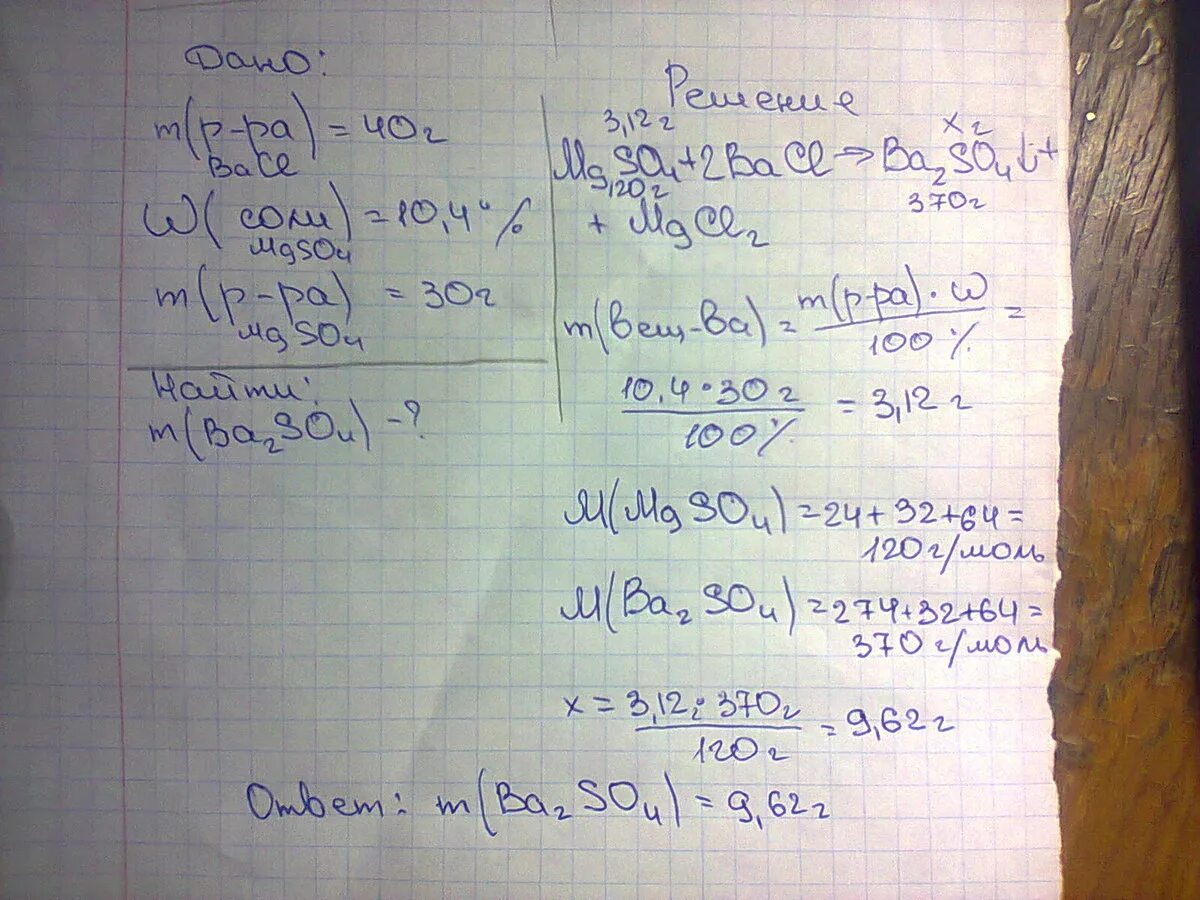 Дано:
m(р-ра) = 40г
BaCl
W(соли) = 10,4%
MgSO4
m(р-ра) = 30г
MgSO4
Найти:
m(Ba2SO4) - ?
Решение
3,12г xг
MgSO4 + 2BaCl → Ba2SO4↓ +
120г 370г
+ MgCl2
m(вещ-ва) = m(р-ра) · W / 100% =
10,4 · 30г / 100% = 3,12г
M(MgSO4) = 24 + 32 + 64 =
120г/моль
M(Ba2SO4) = 274 + 32 + 64 =
370г/моль
x = 3,12г · 370г / 120г = 9,62г
Ответ: m(Ba2SO4) = 9,62г